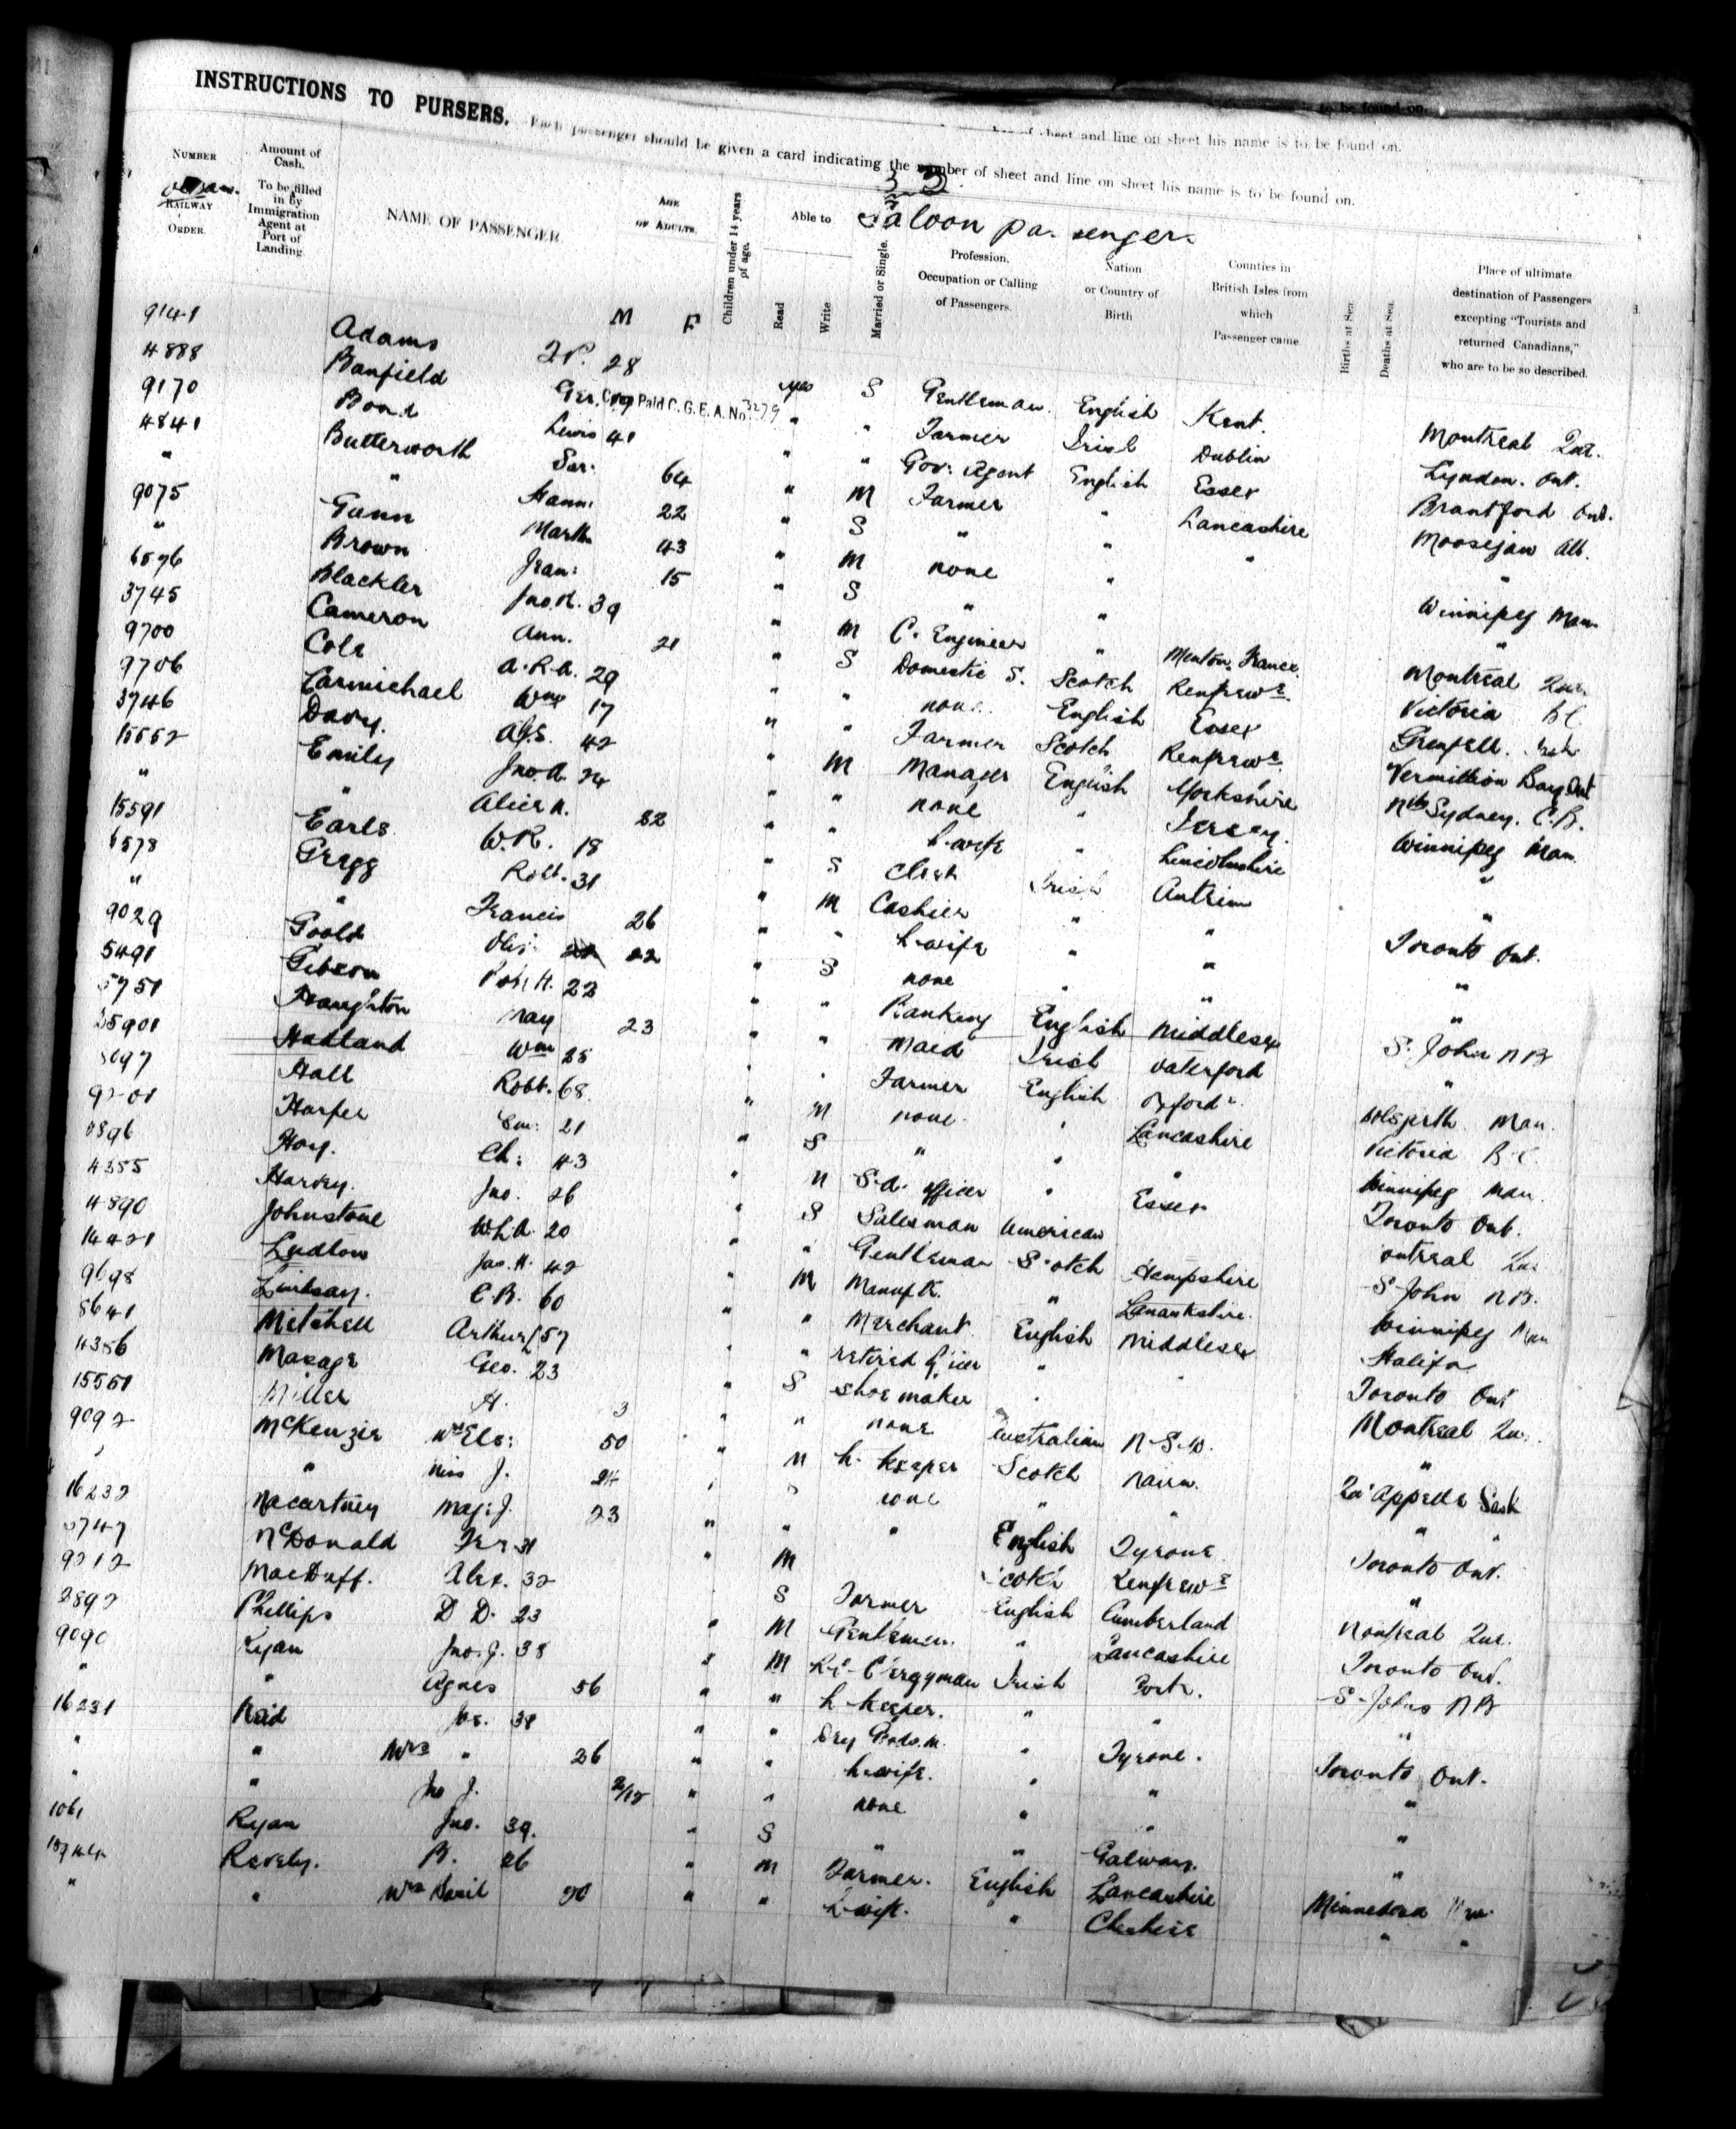 to be found on.
INSTRUCTIONS TO PURSERS. Each passenger should be given a card indicating the number of sheet and line on sheet his name is to be found on.
of sheet and line on sheet his name is to be found on.
33
Saloon passenger.
NUMBER RAILWAY ORDER.
Amount of Cash. To be filled in by Immigration Agent at Port of Landing.
NAME OF PASSENGER
AGE OF ADULTS. M F
Children under 14 years of age.
Able to Read Write
Married or Single.
Profession, Occupation or Calling of Passengers.
Nation or Country of Birth
Counties in British Isles from which Passenger came
Births at Sea
Deaths at Sea.
Place of ultimate destination of Passengers excepting "Tourists and returned Canadians," who are to be so described.
9141 Adams 28 yes S Gentleman English Kent. Montreal Que.
4888 Banfield Geo. 19 Paid C. G. E. A. No. 3279 " " Farmer Irish Dublin Lyndon. Ont.
9170 Bond Lewis 41 " " Gov. Agent English Essex Brantford Ont.
4841 Butterworth Sar: 64 " M Farmer " Lancashire Moosejaw Alb.
" " Hann: 22 " S " " " "
9075 Gunn Marth 43 " M none " Winnipeg Man
" Brown Jean: 15 " S " " "
6576 Blackler Jno. R. 39 " M C. Engineer " Menton. France Montreal Que.
3745 Cameron Ann. 21 " S Domestic S. Scotch Renfrews. Victoria B.C.
9700 Cole A.R.A. 29 " " none. English Essex Grenfell. Sask
9706 Carmichael Wm 17 " " Farmer Scotch Renfrews. Vermillion Bay Ont
3746 Davy. Alf.S. 42 " M Manager English Yorkshire Nth Sydney. C.B.
15552 Emily Jno. A. 24 " " none " Jersey. Winnipeg Man.
" " Alice N. 22 " " h.wife " Lincolnshire "
15591 Earls W.R. 18 " S Clerk Irish Antrim "
6578 Gregg Robt. 31 " M Cashier " " Toronto Ont.
" " Francis 26 " " h.wife " " "
9029 Goold 22 " S none " " "
5491 Gibson Robt H. 22 " " Banking English Middlesex S. John NB
5751 Haughton May 23 " " Maid Irish Waterford "
25901 Hadland Wm 25 " " Farmer English Oxfords. Man.
8097 Hall Robt. 68 " M none. " Lancashire Victoria B.C.
Harper Em: 21 " S " " " Winnipeg Man.
Hoey. Ch: 43 " M S.A. officer " Essex Toronto Ont.
4355 Harvey. Jno. 26 " S Salesman American ontreal Que
4890 Johnstone W.L.A. 20 " " Gentleman Scotch Hampshire S. John NB.
14421 Ludlow Jas. H. 42 " M " Lanarkshire. Winnipeg Man
9698 Lindsay. C.B. 60 " " Merchant. English Middlesex Halifax
8641 Mitchell Arthur 57 " " retired " " Toronto Ont
4356 Masage Geo. 23 " S shoemaker " Montreal Que.
15561 Miller H. 3 " none Australian N.S.W. "
9092 McKenzie Mrs Ele: 50 " M h. keeper Scotch Nairn. Qu'Appelle Sask
" " Miss J. 24 " none " " " "
16232 Macartney Maj: J. 23 " " " English Tyrone Toronto Ont.
3747 McDonald 31 " M Scotch Renfrews "
9212 MacDuff. Alex. 32 S Farmer English Cumberland Montreal Que.
2892 Phillips D D. 23 " M Gentleman. " Lancashire Toronto Ont.
9090 Ryan Jno. J. 38 " M R.C. Clergyman Irish Cork. S. Johns NB
" " Agnes 56 " " h keeper. " " "
16231 Reid Jos. 31 " " Dry Goods M. " Tyrone. Toronto Ont.
" " Mrs " 26 " " h.wife. " " "
" " Jno J. 2/12 " " none " " "
1061 Ryan Jno. 39. " S " " Galway. "
Revely. B. 26 " M Farmer. English Lancashire Minnedosa Man.
" " Mrs 20 " " h.wife. " Cheshire " "